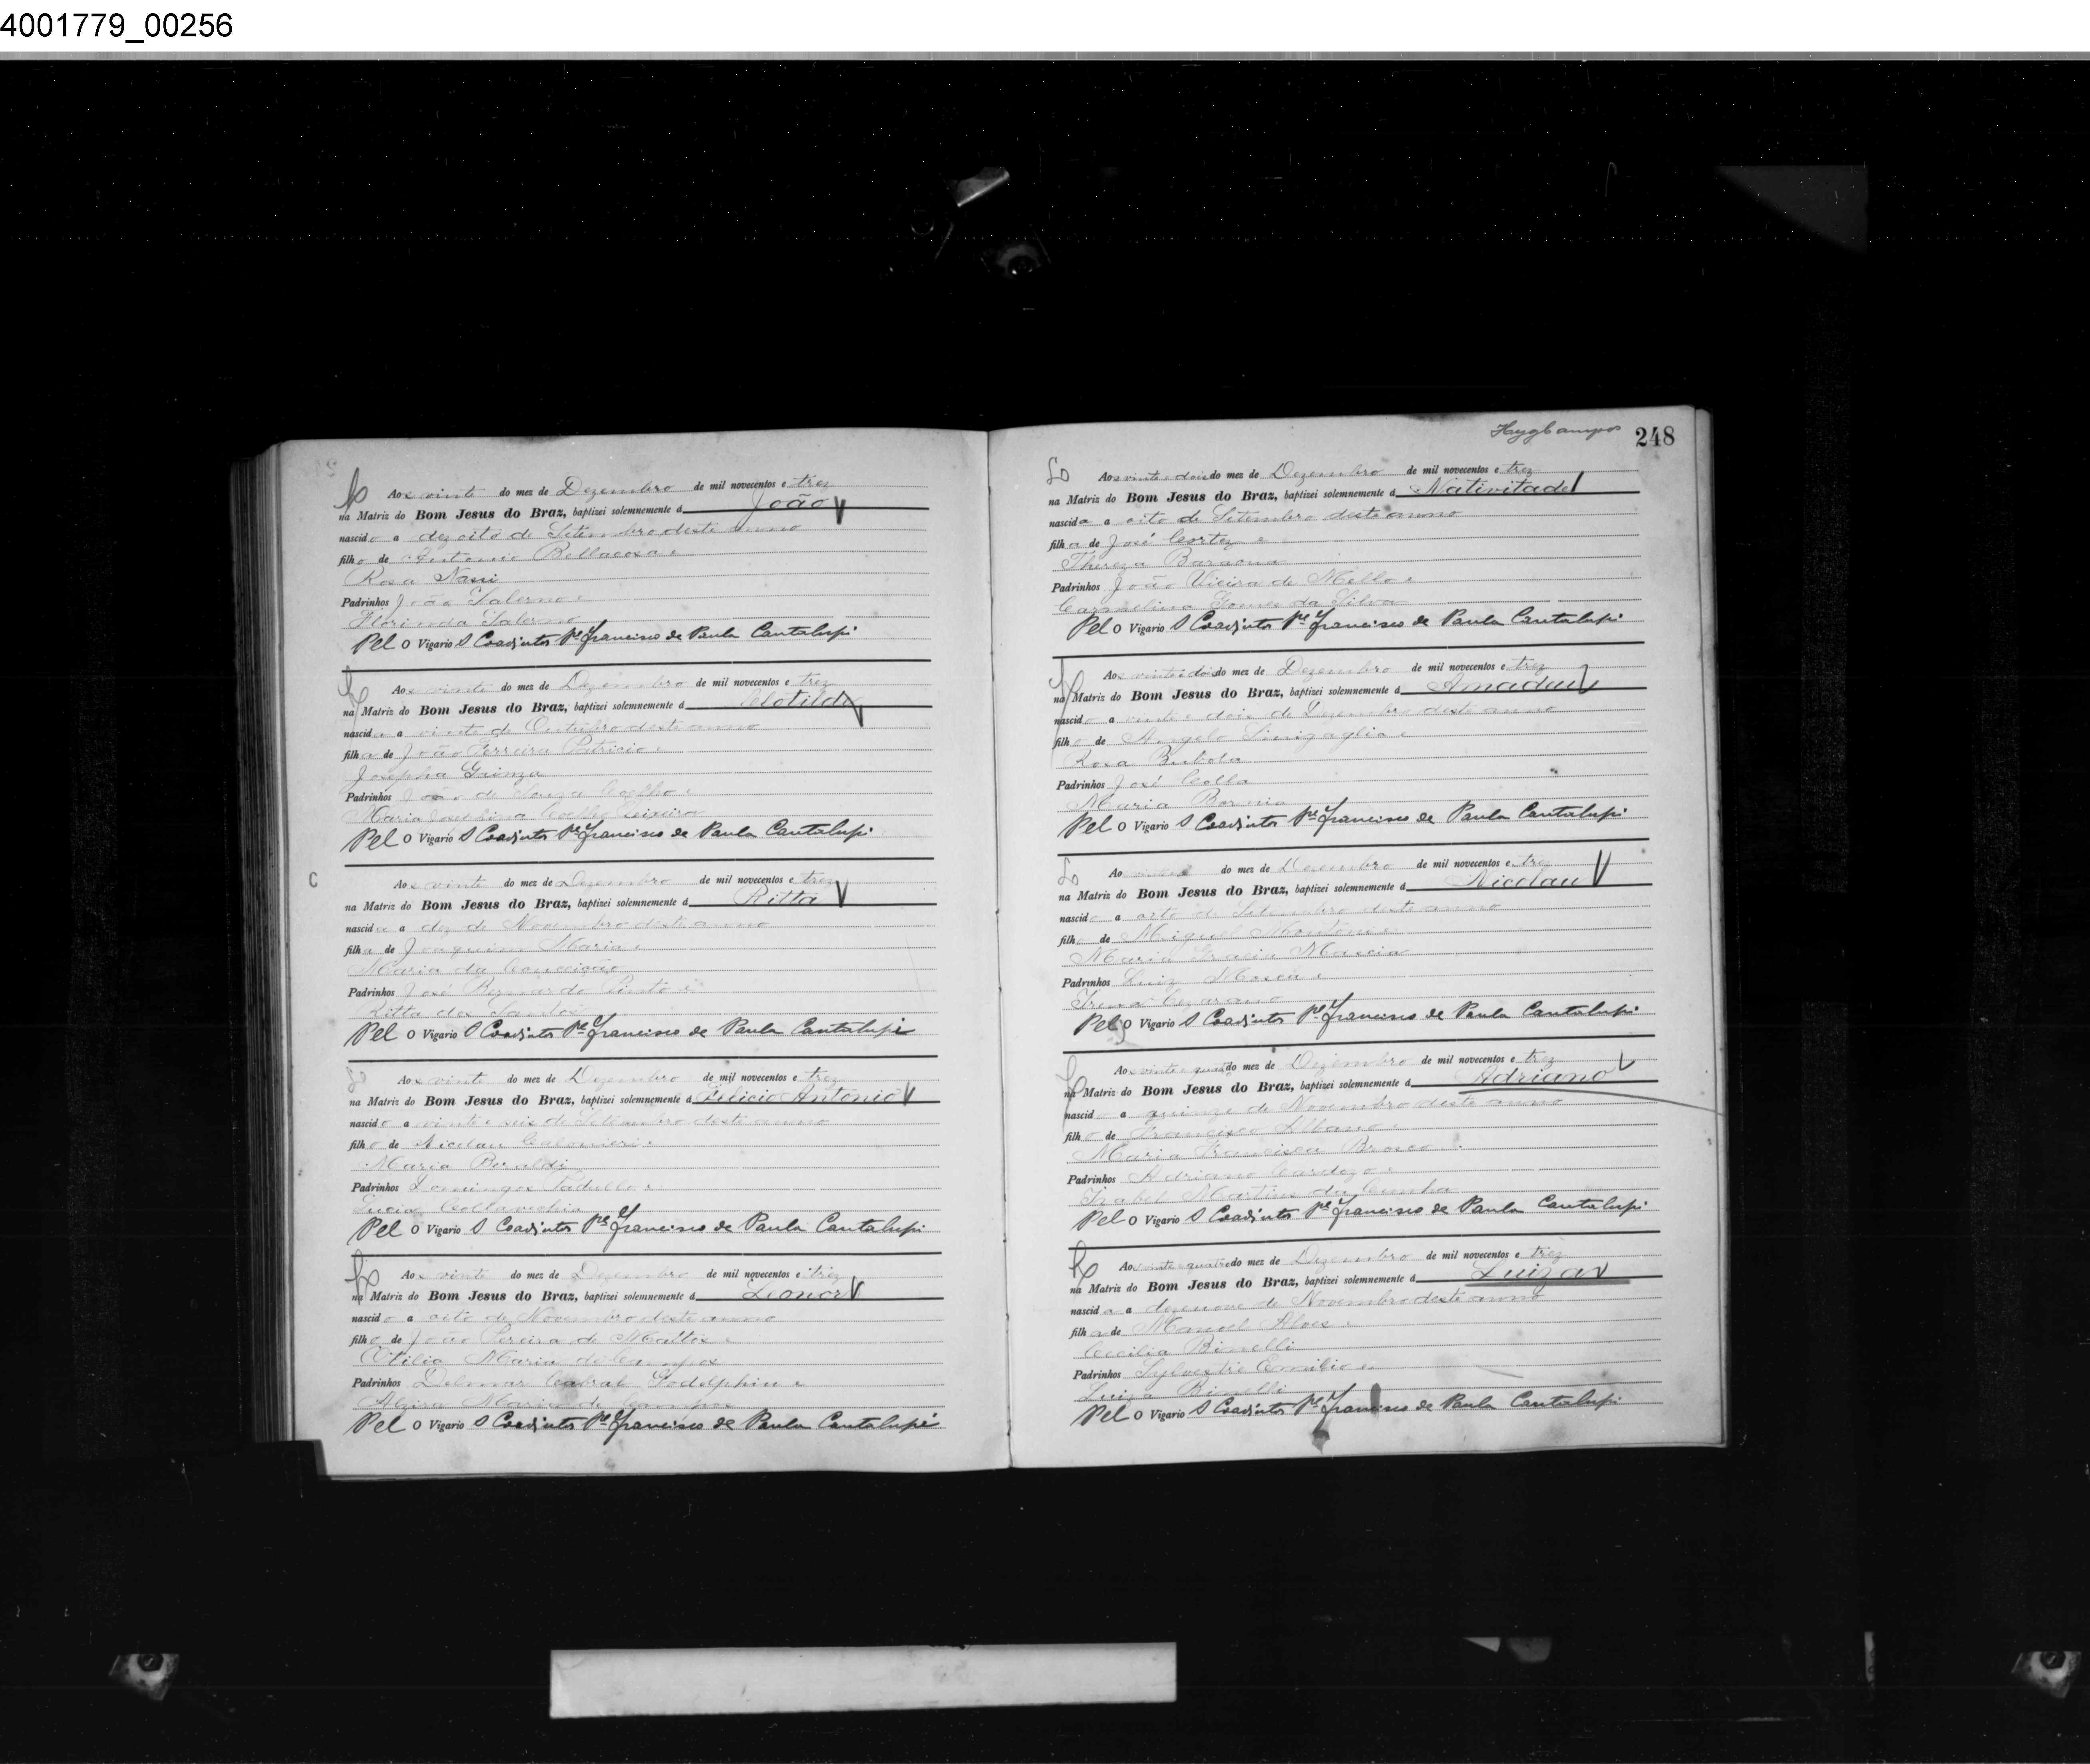 4001779_00256
Aos vinte do mez de Dezembro de mil novecentos e trez
na Matriz do Bom Jesus do Braz, baptizei solemnemente á João
nascido a dezoito de Setembro deste anno
filho de Antonio Bellacosa e
Rosa Nasi
Padrinhos João Salerno e
Florinda Salerno
Pelo Vigario O Coadjutor Pe Francisco de Paula Cantalupi
Aos vinte do mez de Dezembro de mil novecentos e trez
na Matriz do Bom Jesus do Braz, baptizei solemnemente á Clotilde
nascida a vinte de Outubro deste anno
filha de João Ferreira Patricio e
Josepha Guinza
Padrinhos João de Souza Coelho e
Maria Josephina Coelho Teixeira
Pelo Vigario O Coadjutor Pe Francisco de Paula Cantalupi
C
Aos vinte do mez de Dezembro de mil novecentos e trez
na Matriz do Bom Jesus do Braz, baptizei solemnemente á Ritta
nascida a dez de Novembro deste anno
filha de Joaquim Maria e
Maria da Conceição
Padrinhos José Bernardo Pinto e
Ritta dos Santos
Pelo Vigario O Coadjutor Pe Francisco de Paula Cantalupi
Aos vinte do mez de Dezembro de mil novecentos e trez
na Matriz do Bom Jesus do Braz, baptizei solemnemente á Felicio Antonio
nascido a vinte e seis de Setembro deste anno
filho de Nicolau Calomieri e
Maria Beraldi
Padrinhos Domingos Padullo e
Lucia Collavechia
Pelo Vigario O Coadjutor Pe Francisco de Paula Cantalupi
Aos vinte do mez de Dezembro de mil novecentos e trez
na Matriz do Bom Jesus do Braz, baptizei solemnemente á Leonor
nascido a oito de Novembro deste anno
filho de João Pereira de Mattos e
Otilia Maria de Campos
Padrinhos Delmar Cabral Godolphim e
Alzira Maria de Campos
Pelo Vigario O Coadjutor Pe Francisco de Paula Cantalupi
248
Aos vinte e dois do mez de Dezembro de mil novecentos e trez
na Matriz do Bom Jesus do Braz, baptizei solemnemente á Nativitade
nascida a oito de Setembro deste anno
filha de José Cortez e
Thereza Baracua
Padrinhos João Vieira de Mello e
Carmelina Gomes da Silva
Pelo Vigario O Coadjutor Pe Francisco de Paula Cantalupi
Aos vinte e dois do mez de Dezembro de mil novecentos e trez
na Matriz do Bom Jesus do Braz, baptizei solemnemente á Amadeu
nascido a vinte e dois de Dezembro deste anno
filho de Angelo Sinigaglia e
Rosa Bubola
Padrinhos José Colla
Maria Bornia
Pelo Vigario O Coadjutor Pe Francisco de Paula Cantalupi
Ao do mez de Dezembro de mil novecentos e trez
na Matriz do Bom Jesus do Braz, baptizei solemnemente á Nicolau
nascido a oito de Setembro deste anno
filho de Miguel Montone e
Maria Gracia Mascia
Padrinhos Luiz Mosca e
Irena Cezarano
Pelo Vigario O Coadjutor Pe Francisco de Paula Cantalupi
Aos vinte e quatro do mez de Dezembro de mil novecentos e trez
na Matriz do Bom Jesus do Braz, baptizei solemnemente á Adriano
nascido a quinze de Novembro deste anno
filho de Francisco Albano e
Maria Francisca Brosco
Padrinhos Adriano Cardozo e
Izabel Martins da Cunha
Pelo Vigario O Coadjutor Pe Francisco de Paula Cantalupi
Aos vinte e quatro do mez de Dezembro de mil novecentos e trez
na Matriz do Bom Jesus do Braz, baptizei solemnemente á Luiza
nascida a dezenove de Novembro deste anno
filha de Manoel Alves e
Cecilia Binelli
Padrinhos Sylvestre Emilio e
Luiza Binelli
Pelo Vigario O Coadjutor Pe Francisco de Paula Cantalupi